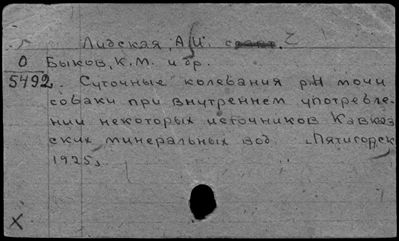 Лидская, А.И. с
О Быков, К.М. и др.
5492. Суточные колебания pH мочи
собаки при внутреннем употребле-
нии некоторых источников Кавказ
ских минеральных вод. "Пятигорск
1925".
X